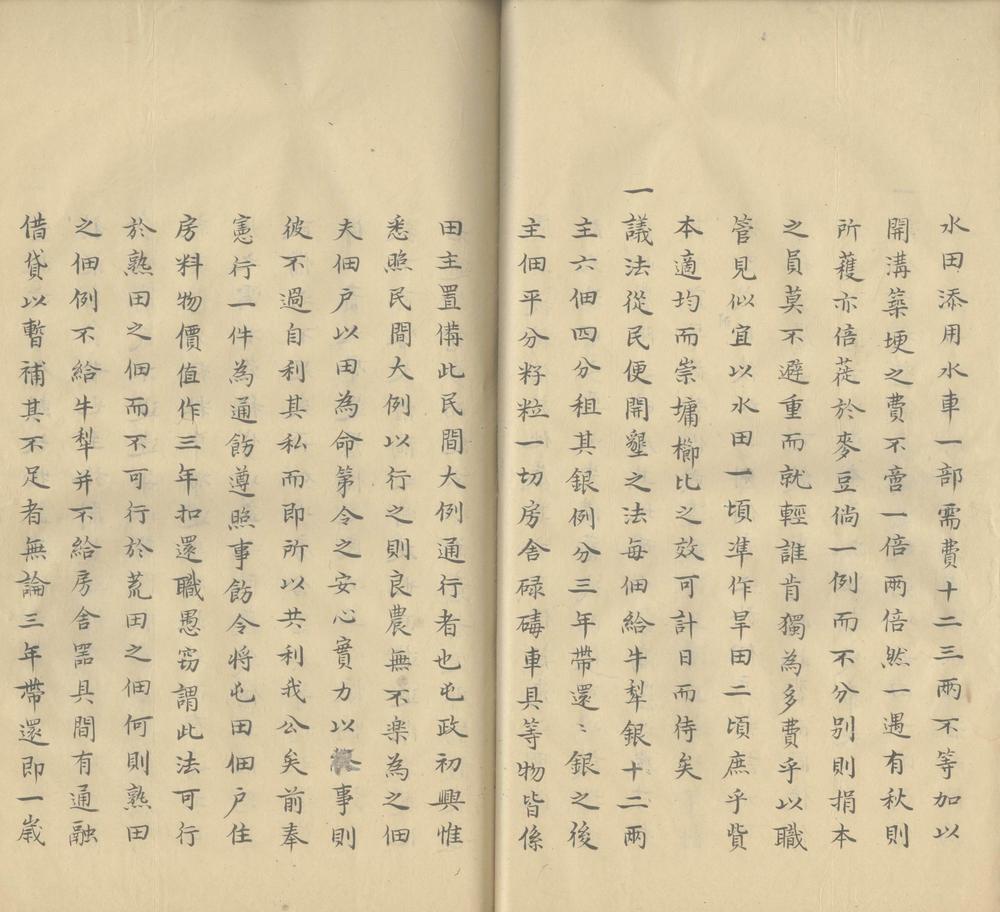 水田添用水車一部需費十二三兩不等加以
開溝築埂之費不啻一倍兩倍然一遇有秋則
所穫亦倍蓰於麥豆倘一例而不分别則捐本
之員莫不避重而就輕誰肯獨為多費乎以職
管見似宜以水田一頃準作旱田二頃庶乎貲
本適均而崇墉櫛比之效可計日而待矣
一議法從民便開墾之法每佃給牛犁銀十二兩
主六佃四分租其銀例分三年帶還〻銀之後
主佃平分籽粒一切房舍碌碡車具等物皆係
田主置備此民間大例通行者也屯政初興惟
悉照民間大例以行之則良農無不楽為之佃
夫佃戶以田為命第令之安心實力以事則
彼不過自利其私而即所以共利我公矣前奉
憲行一件為通飭遵照事飭令將屯田佃戶住
房料物價值作三年扣還職愚窃謂此法可行
於熟田之佃而不可行於荒田之佃何則熟田
之佃例不給牛犁并不給房舍噐具間有通融
借貸以暫補其不足者無論三年帶還即一歲